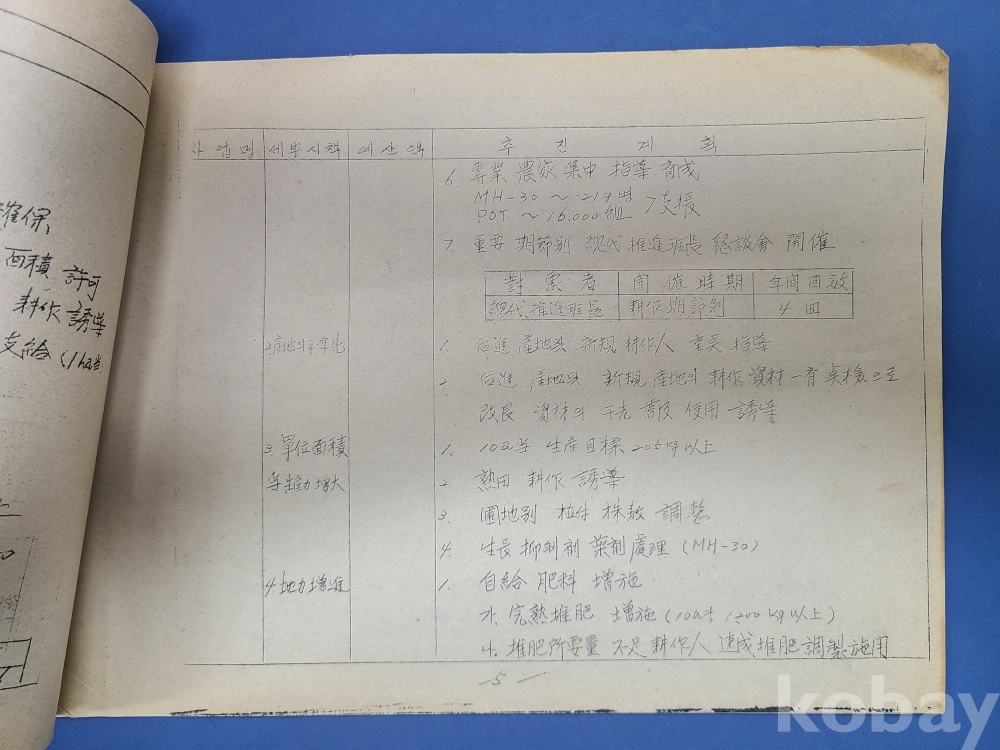 確保,
面積 許可
耕作 誘導
支給 (1ha当
사업명 세부시책 예산액 추진계획
6. 専業 農家 集中 指導 育成
MH-30 ~ 219병
POT ~ 16,000組 > 支援
7. 重要 期節別 總代 推進班長 懇談會 開催
對象者 開催時期 年間回數
總代, 推進班長 耕作期節別 4回
2.産地의平準化 1. 后進 産地와 新規 耕作人 重点 指導
2. 后進 産地와 新規 産地의 耕作資材 一斉 点検으로
改良 資材의 于先 普及 使用 誘導
3. 單位面積 1. 10a当 生産目標 205kg以上
生産力 增大 2. 熟田 耕作 誘導
3. 圃地別 植付 株数 調整
4. 生長 抑制剤 薬剤 處理 (MH-30)
4. 地力增進 1. 自給 肥料 增施
가. 完熟堆肥 增施 (10a当 1200kg以上)
나. 堆肥所要量 不足 耕作人 速成堆肥 調製施用
-5-
kobay